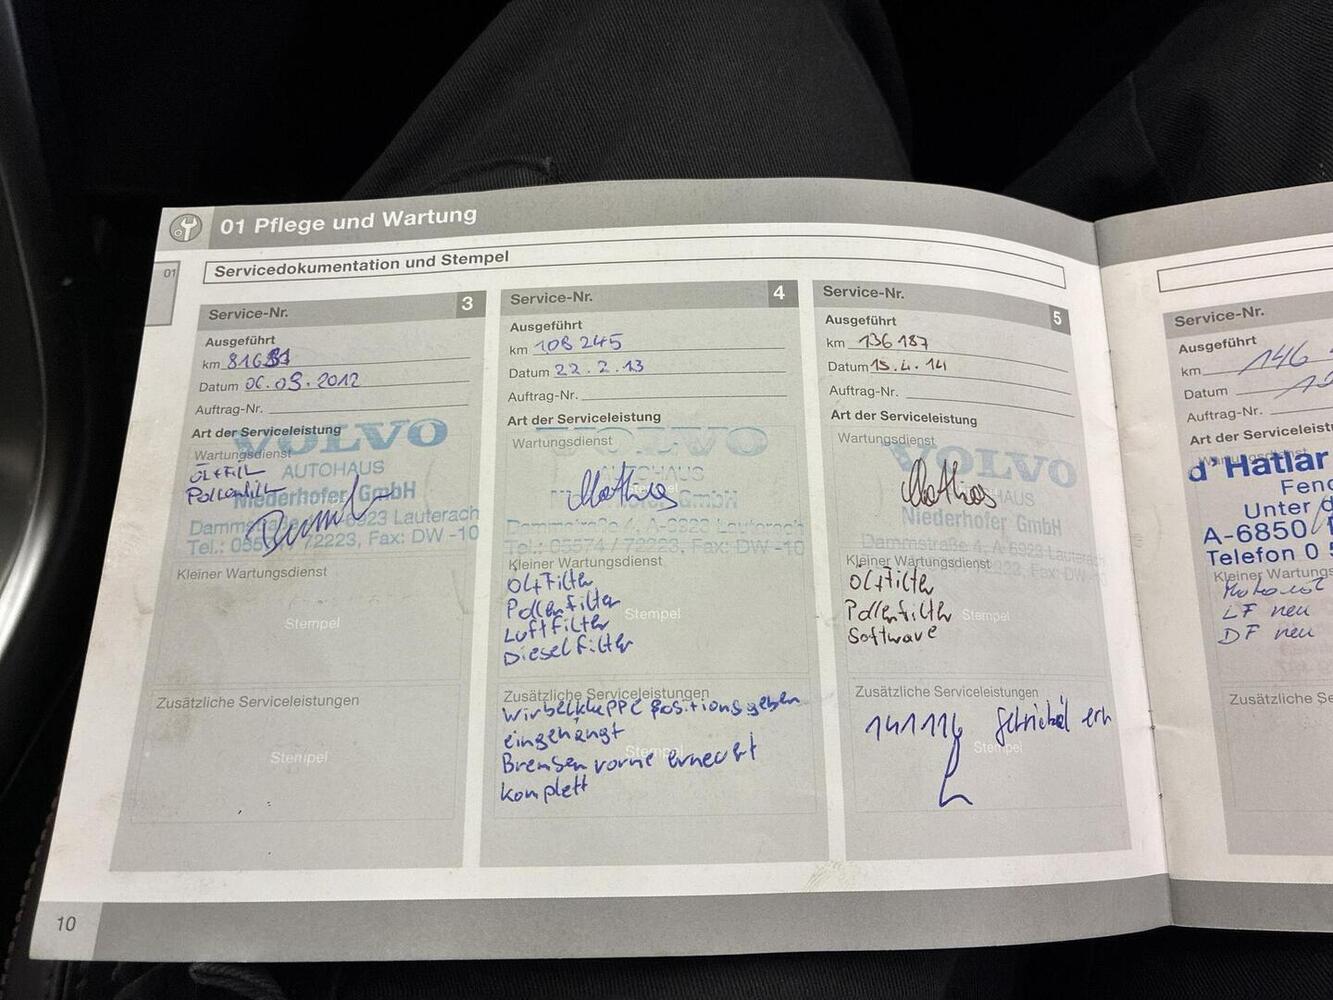 01 Pflege und Wartung
01
Servicedokumentation und Stempel
Service-Nr. 3
Ausgeführt
km
Datum 06.03.2012
Auftrag-Nr.
Art der Serviceleistung
VOLVO
Wartungsdienst
AUTOHAUS
Niederhofer GmbH
Dammstraße 4, A-6923 Lauterach
Tel.: 05574 / 72223, Fax: DW -10
Kleiner Wartungsdienst
Stempel
Zusätzliche Serviceleistungen
Stempel
Service-Nr. 4
Ausgeführt
km 108 245
Datum 22.2.13
Auftrag-Nr.
Art der Serviceleistung
VOLVO
Wartungsdienst
AUTOHAUS
Niederhofer GmbH
Dammstraße 4, A-6923 Lauterach
Tel.: 05574 / 72223, Fax: DW -10
Kleiner Wartungsdienst
Öl+Filter
Pollenfilter
Stempel
Luftfilter
Dieselfilter
Zusätzliche Serviceleistungen
Wirbelklappe Positionsgeber
eingehängt
Stempel
Bremsen vorne erneuert
komplett
Service-Nr. 5
Ausgeführt
km 136 187
Datum 15.4.14
Auftrag-Nr.
Art der Serviceleistung
Wartungsdienst
VOLVO
AUTOHAUS
Niederhofer GmbH
Dammstraße 4, A-6923 Lauterach
Kleiner Wartungsdienst
Öl+Filter
Pollenfilter
Stempel
Software
Zusätzliche Serviceleistungen
Stempel
10
Service-Nr.
Ausgeführt
km 146
Datum
Auftrag-Nr.
Art der
d'Hatlar
Unter
A-6850
Telefon 0
Kleiner
LF neu
DF neu